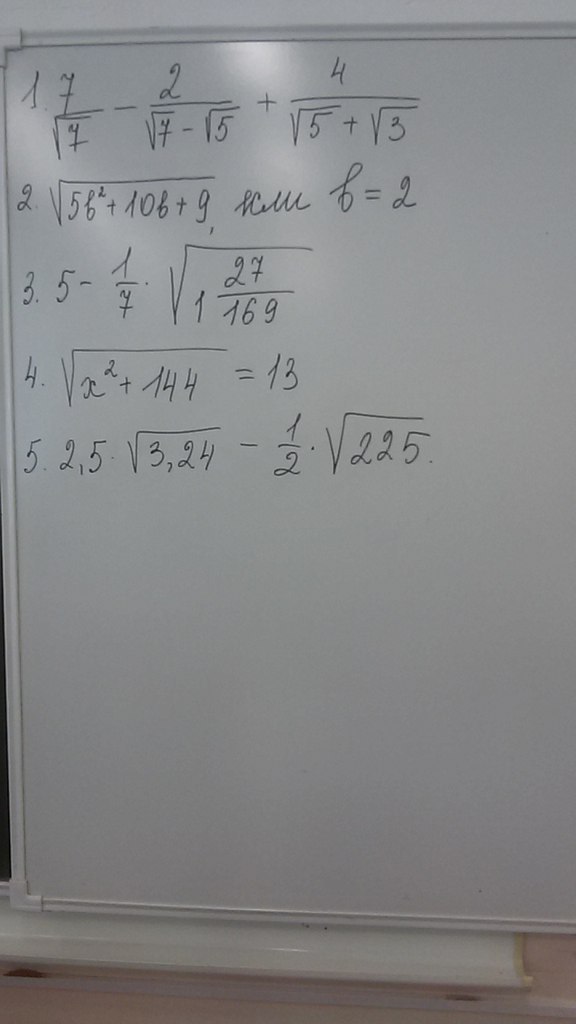 1. 7/√7 − 2/(√7 − √5) + 4/(√5 + √3)
2. √(5b² + 10b + 9), если b = 2
3. 5 − 1/7 · √(1 27/169)
4. √(x² + 144) = 13
5. 2,5 · √3,24 − 1/2 · √225.